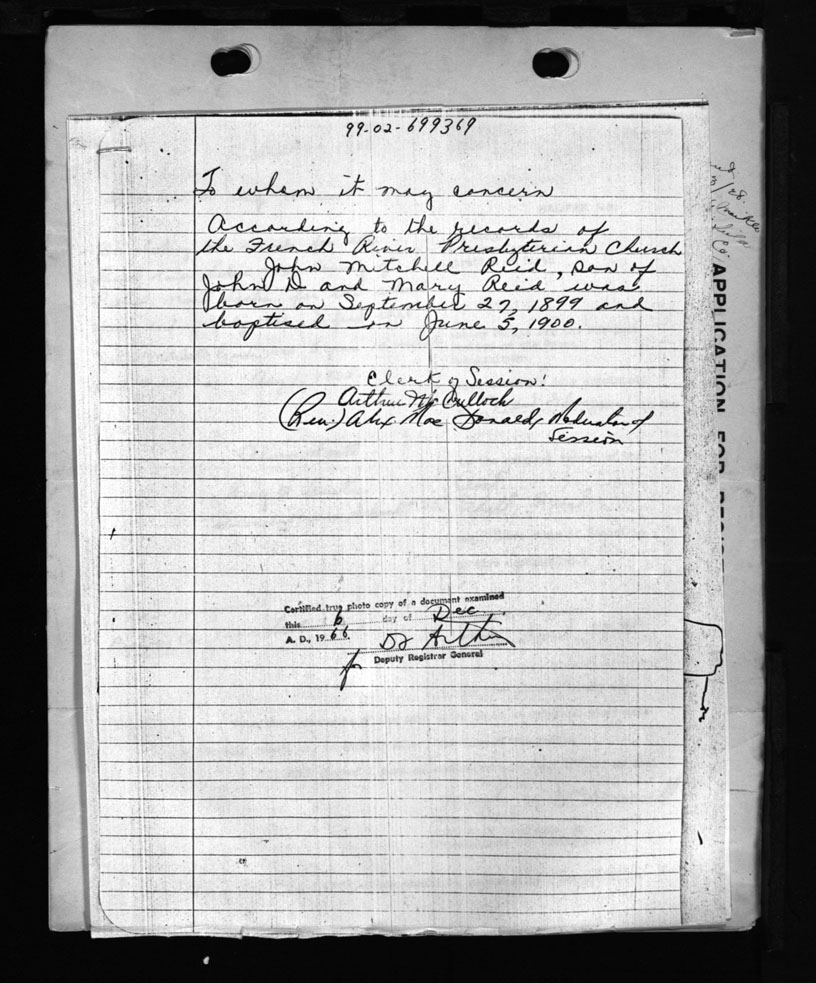 99-02-699369
To whom it may concern
According to the records of
the French River Presbyterian Church
John Mitchell Reid, son of
John D and Mary Reid was
born on September 27, 1899 and
baptised on June 5, 1900.
Clerk of Session!
Arthur McCulloch
(Rev.) Alex MacDonald, Moderator of
Session
Certified true photo copy of a document examined
this 6 day of Dec
A. D., 1966.
for
Deputy Registrar General
APPLICATION FOR